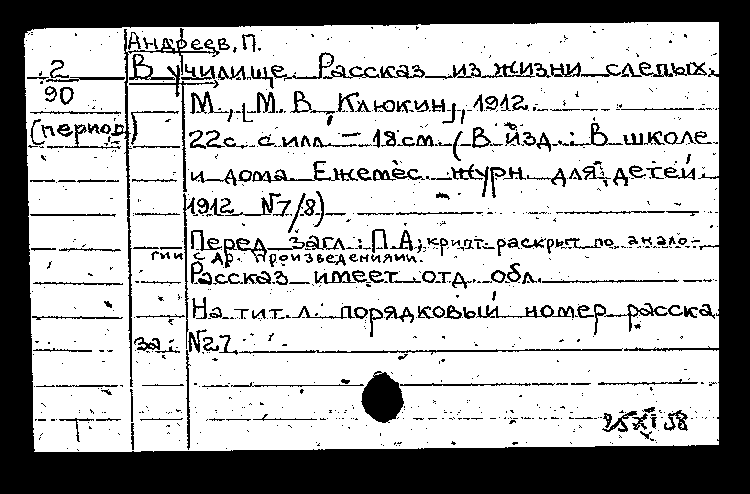 Андреев, П.
2
90
(период)
В училище. Рассказ из жизни слепых.
М., [М. В. Клюкин], 1912.
22с. с илл. – 18см. (В изд.: В школе
и дома. Ежемес. журн. для детей.
1912. N7/8)
Перед загл.: П.А; крипт. раскрыт по анало-
гии с др. произведениями.
Рассказ имеет отд. обл.
На тит. л. порядковый номер расска
за: N27.
25 XI 58